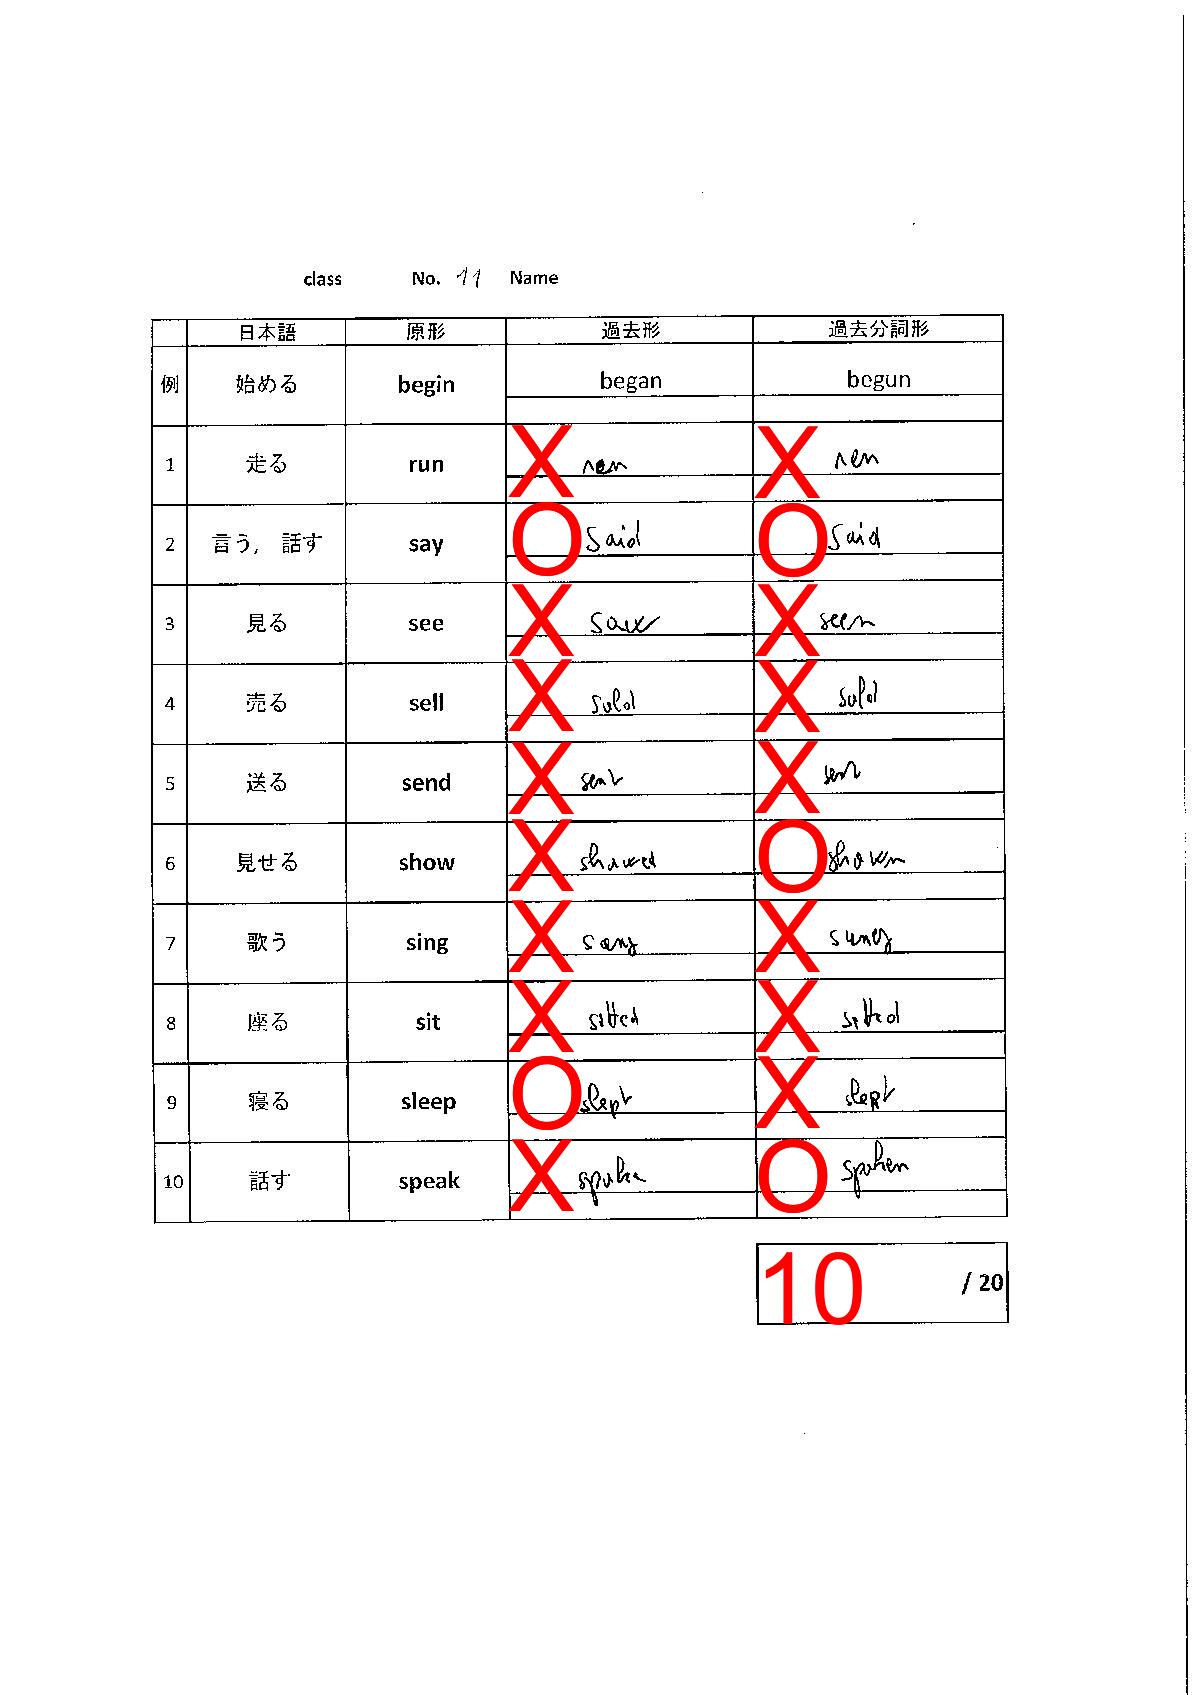 class No. 11 Name
日本語 原形 過去形 過去分詞形
例 始める begin began begun
1 走る run X ren X ren
2 言う, 話す say O said O said
3 見る see X saw X seen
4 売る sell X sold X sold
5 送る send X sent X sent
6 見せる show X showed O shown
7 歌う sing X sang X sung
8 座る sit X sitted X sitted
9 寝る sleep O slept X slept
10 話す speak X spoke O spoken
10 / 20